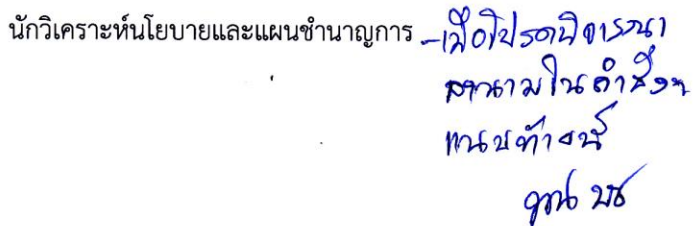 นักวิเคราะห์นโยบายและแผนชำนาญการ -เพื่อโปรดพิจารณา
ลงนามในคำสั่งฯ
แนบท้ายนี้